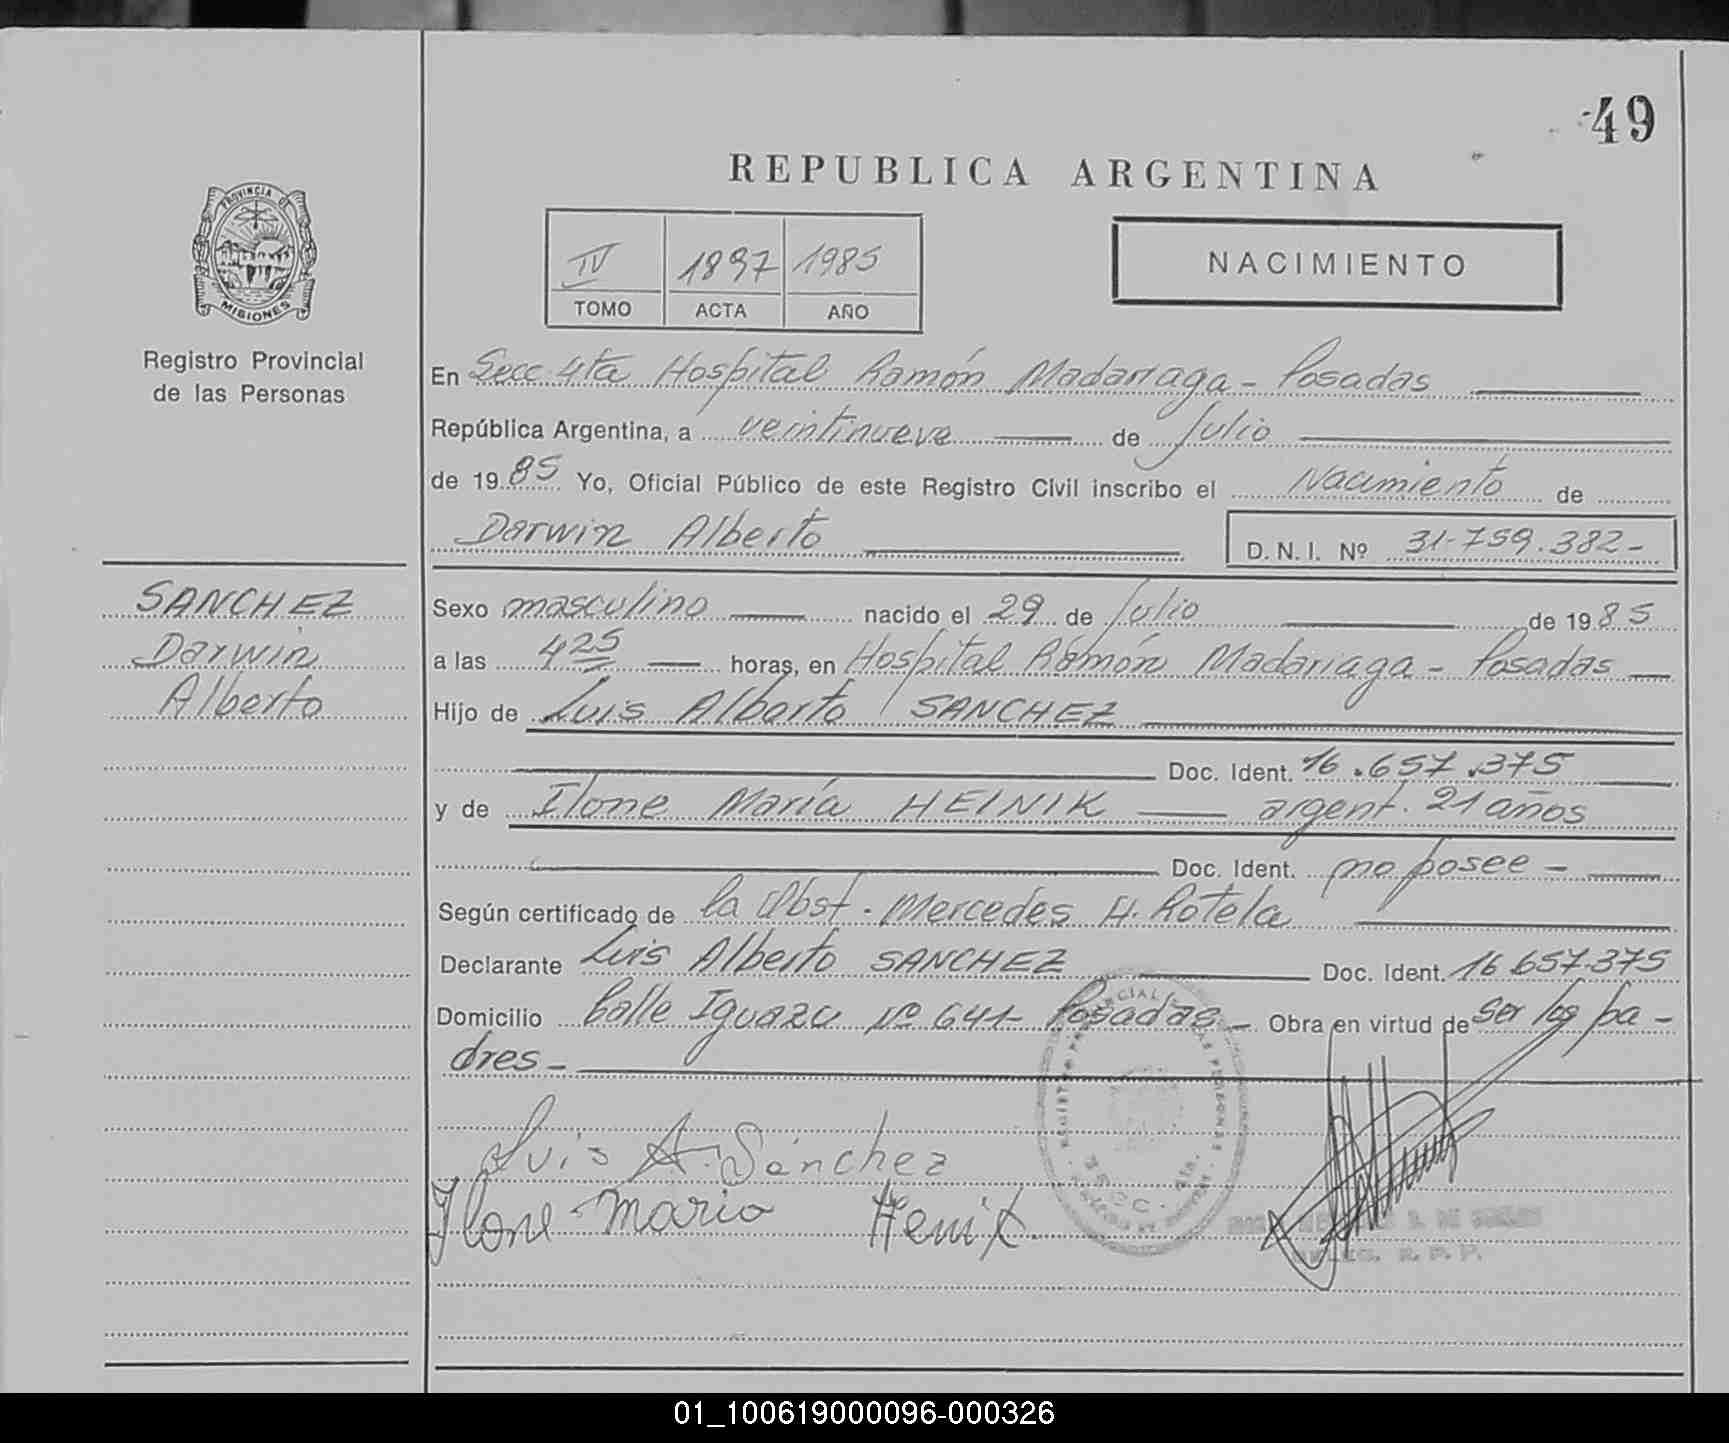 49
REPUBLICA ARGENTINA
PROVINCIA DE
MISIONES
Registro Provincial
de las Personas
IV 1897 1985
TOMO ACTA AÑO
NACIMIENTO
En Secc 4ta Hospital Ramón Madariaga - Posadas
República Argentina, a veintinueve de Julio
de 1985 Yo, Oficial Público de este Registro Civil inscribo el Nacimiento de
Darwin Alberto
D. N. I. Nº 31-759.382-
SANCHEZ
Darwin
Alberto
Sexo masculino nacido el 29 de Julio de 1985
a las 4 25 horas, en Hospital Ramón Madariaga - Posadas
Hijo de Luis Alberto SANCHEZ
Doc. Ident. 16.657.375
y de Ilone María HEINIK argent. 21 años
Doc. Ident. no posee -
Según certificado de la Obst. Mercedes H. Rotela
Declarante Luis Alberto SANCHEZ Doc. Ident. 16 657.375
Domicilio Calle Iguazu Nº 641- Posadas - Obra en virtud de ser los pa-
dres -
Luis A. Sánchez
Ilone Maria Henik
SECC. 4ta.
DELEG. R. P. P.
01_100619000096-000326